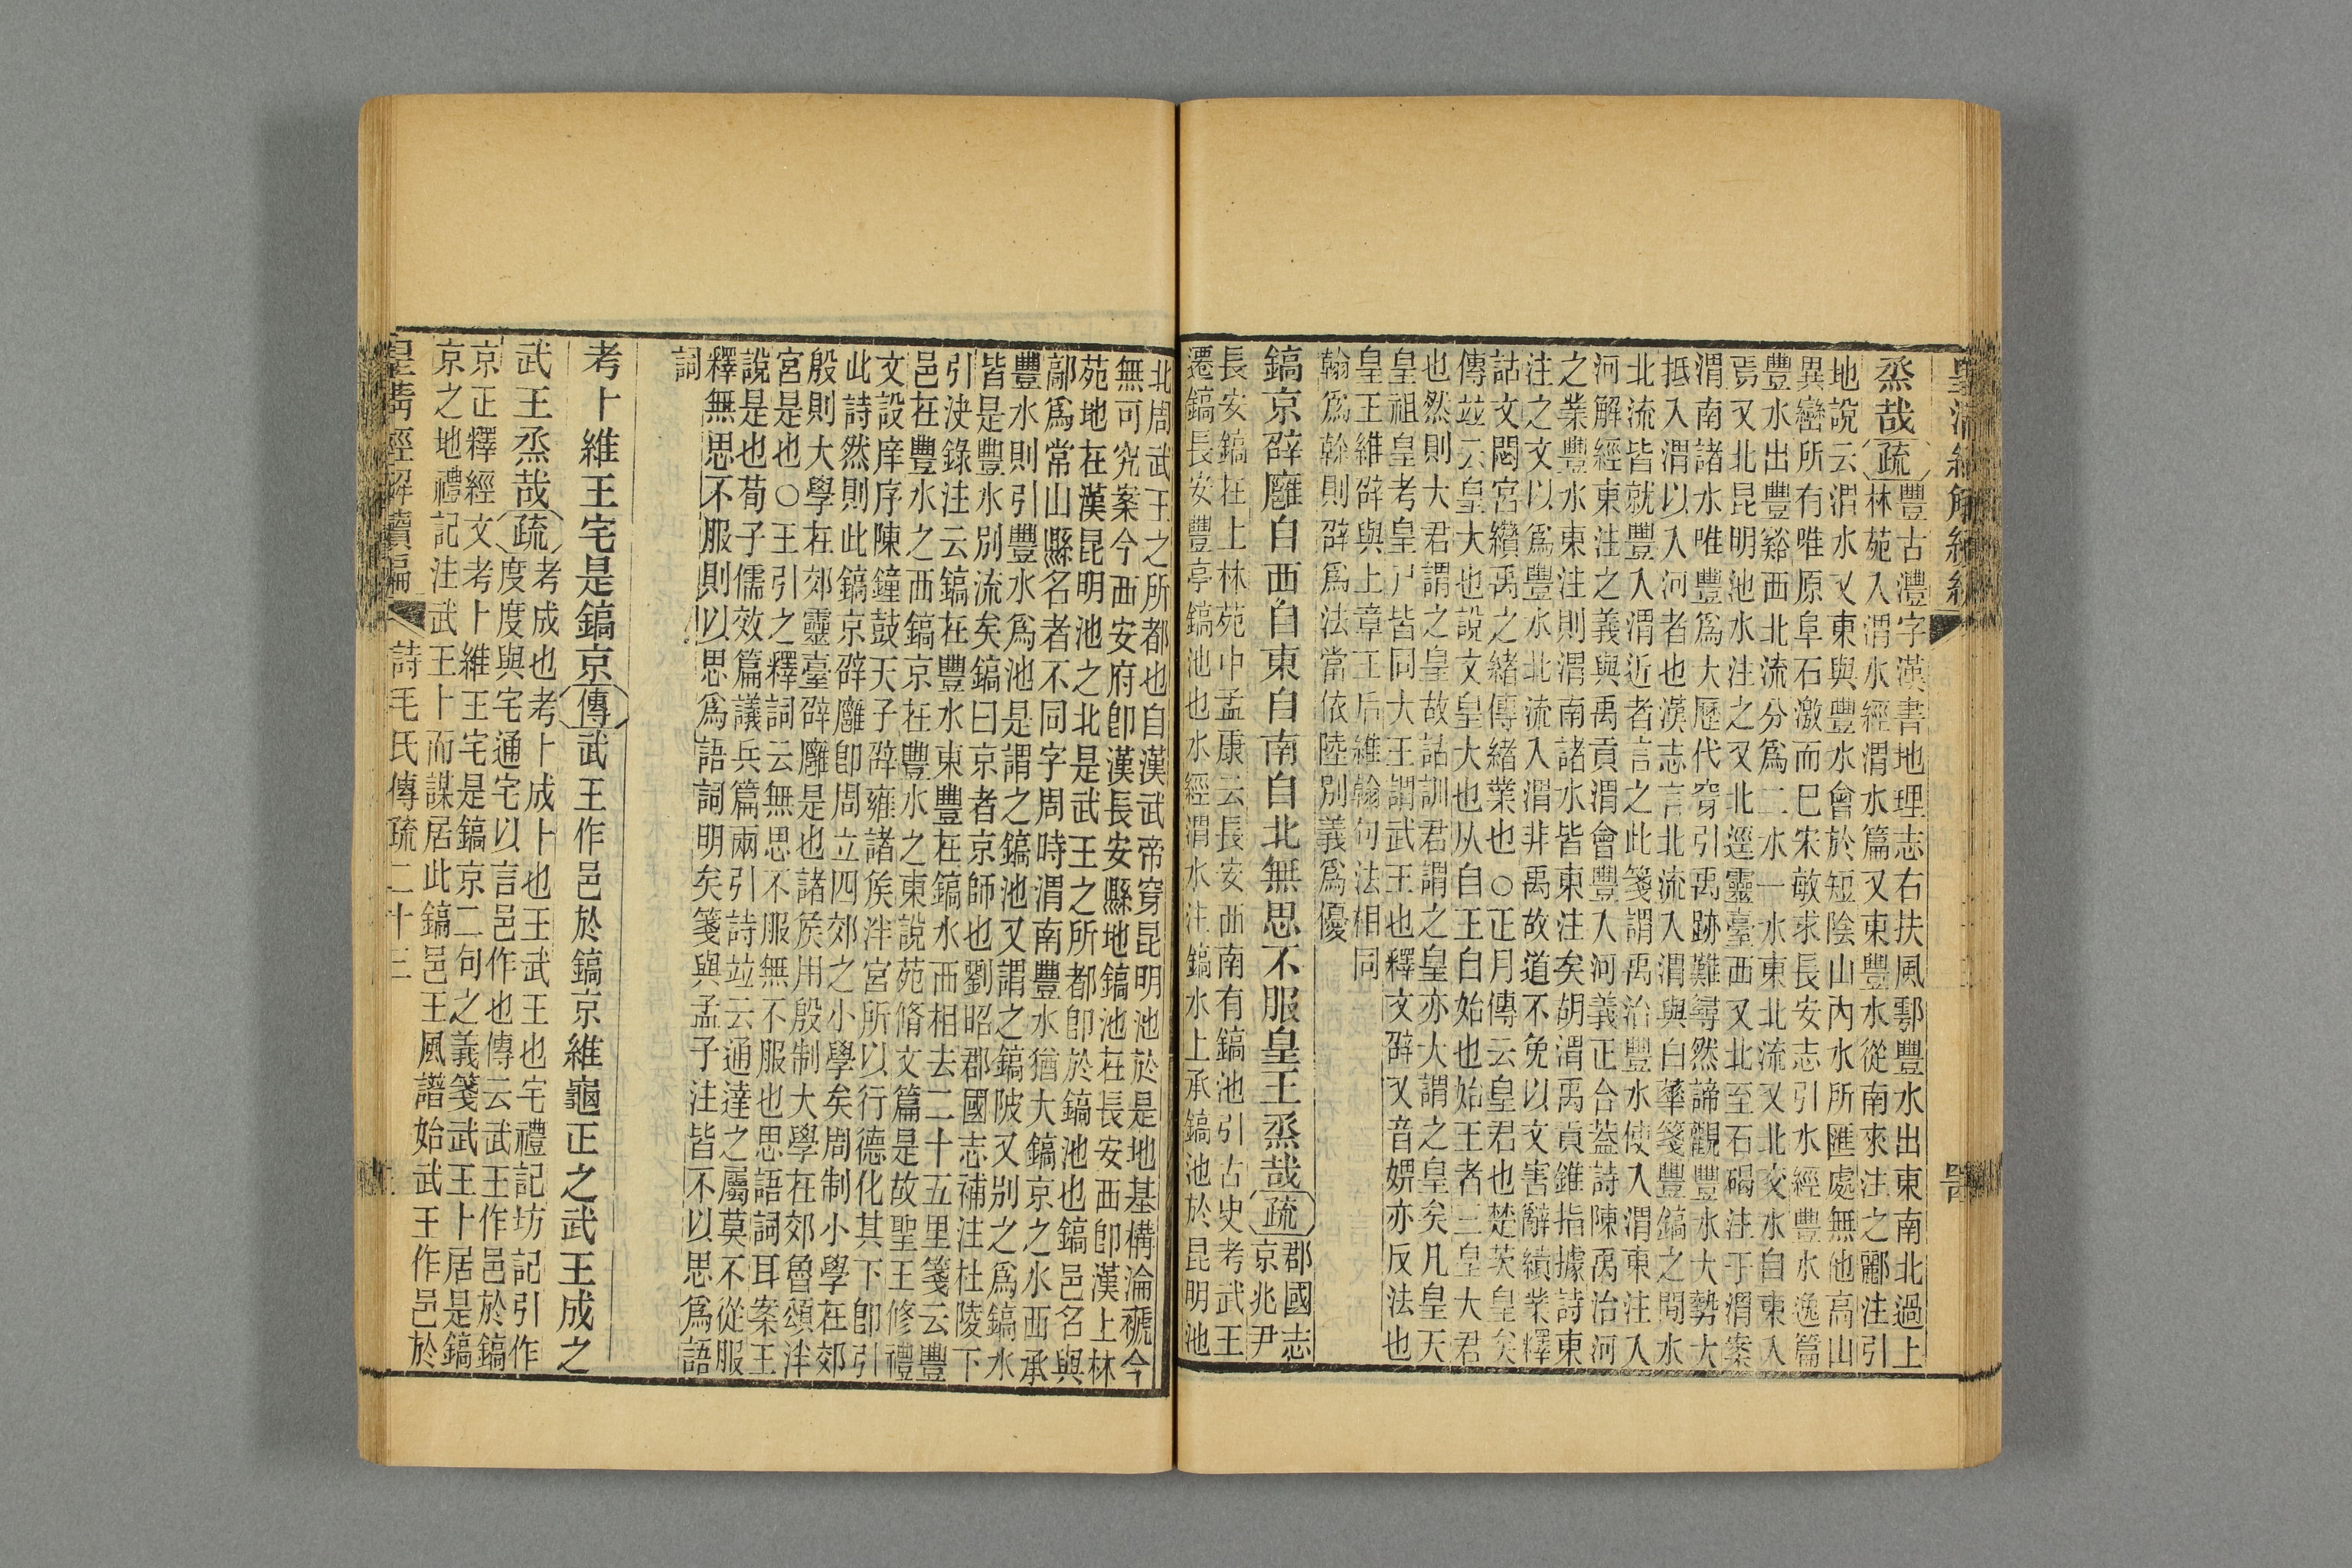 皇清經解續編
烝哉疏豐古灃字漢書地理志右扶風鄠豐水出東南北過上
林苑入渭水經渭水篇又東豐水從南來注之酈注引
地說云渭水又東與豐水會於短陰山內水所匯處無他高山
異巒所有唯原阜石激而已宋敏求長安志引水經豐水逸篇
豐水出豐谿西北流分為二水一水東北流又北交水自東入
焉又北昆明池水注之又北逕靈臺西又北至石碣注于渭案
渭南諸水唯豐為大歷代穿引禹跡難尋然諦觀豐水大勢大
抵入渭以入河者也漢志言北流入渭與白華箋豐鎬之閒水
北流皆就豐入渭近者言之此箋謂禹治豐水使入渭東注入
河解經東注之義與禹貢渭會豐入河義正合葢詩陳禹治河
之業豐水東注則渭南諸水皆東注矣胡渭禹貢錐指據詩東
注之文以為豐水北流入渭非禹故道不免以文害辭績業釋
詁文閟宮纘禹之緒傳緒業也○正月傳云皇君也楚茨皇矣
傳竝云皇大也說文皇大也从自王自始也始王者三皇大君
也然則大君謂之皇故詁訓君謂之皇亦大謂之皇矣凡皇天
皇祖皇考皇尸皆同大王謂武王也釋文辟又音婢亦反法也
皇王維辟與上章王后維翰句法相同
翰為榦則辟為法當依陸別義為優
鎬京辟廱自西自東自南自北無思不服皇王烝哉疏郡國志
京兆尹
長安鎬在上林苑中孟康云長安西南有鎬池引古史考武王
遷鎬長安豐亭鎬池也水經渭水注鎬水上承鎬池於昆明池
北周武王之所都也自漢武帝穿昆明池於是地基構淪褫今
無可究案今西安府卽漢長安縣地鎬池在長安西卽漢上林
苑地在漢昆明池之北是武王之所都卽於鎬池也鎬邑名與
鄗為常山縣名者不同字周時渭南豐水猶大鎬京之水西承
豐水則引豐水為池是謂之鎬池又謂之鎬陂又別之為鎬水
皆是豐水別流矣鎬曰京者京師也劉昭郡國志補注杜陵下
引決錄注云鎬在豐水東豐在鎬水西相去二十五里箋云豐
邑在豐水之西鎬京在豐水之東說苑脩文篇是故聖王修禮
文設庠序陳鐘鼓天子辟雍諸矦泮宮所以行德化其下卽引
此詩然則此鎬京辟廱卽周立四郊之小學矣周制小學在郊
殷則大學在郊靈臺辟廱是也諸矦用殷制大學在郊魯頌泮
宮是也○王引之釋詞云無思不服無不服也思語詞耳案王
說是也荀子儒效篇議兵篇兩引詩竝云通達之屬莫不從服
釋無思不服則以思為語詞明矣箋與孟子注皆不以思為語
詞
考卜維王宅是鎬京傳武王作邑於鎬京維龜正之武王成之
武王烝哉疏考成也考卜成卜也王武王也宅禮記坊記引作
度度與宅通宅以言邑作也傳云武王作邑於鎬
京正釋經文考卜維王宅是鎬京二句之義箋武王卜居是鎬
京之地禮記注武王卜而謀居此鎬邑王風譜始武王作邑於
皇清經解續編 詩毛氏傳疏二十三